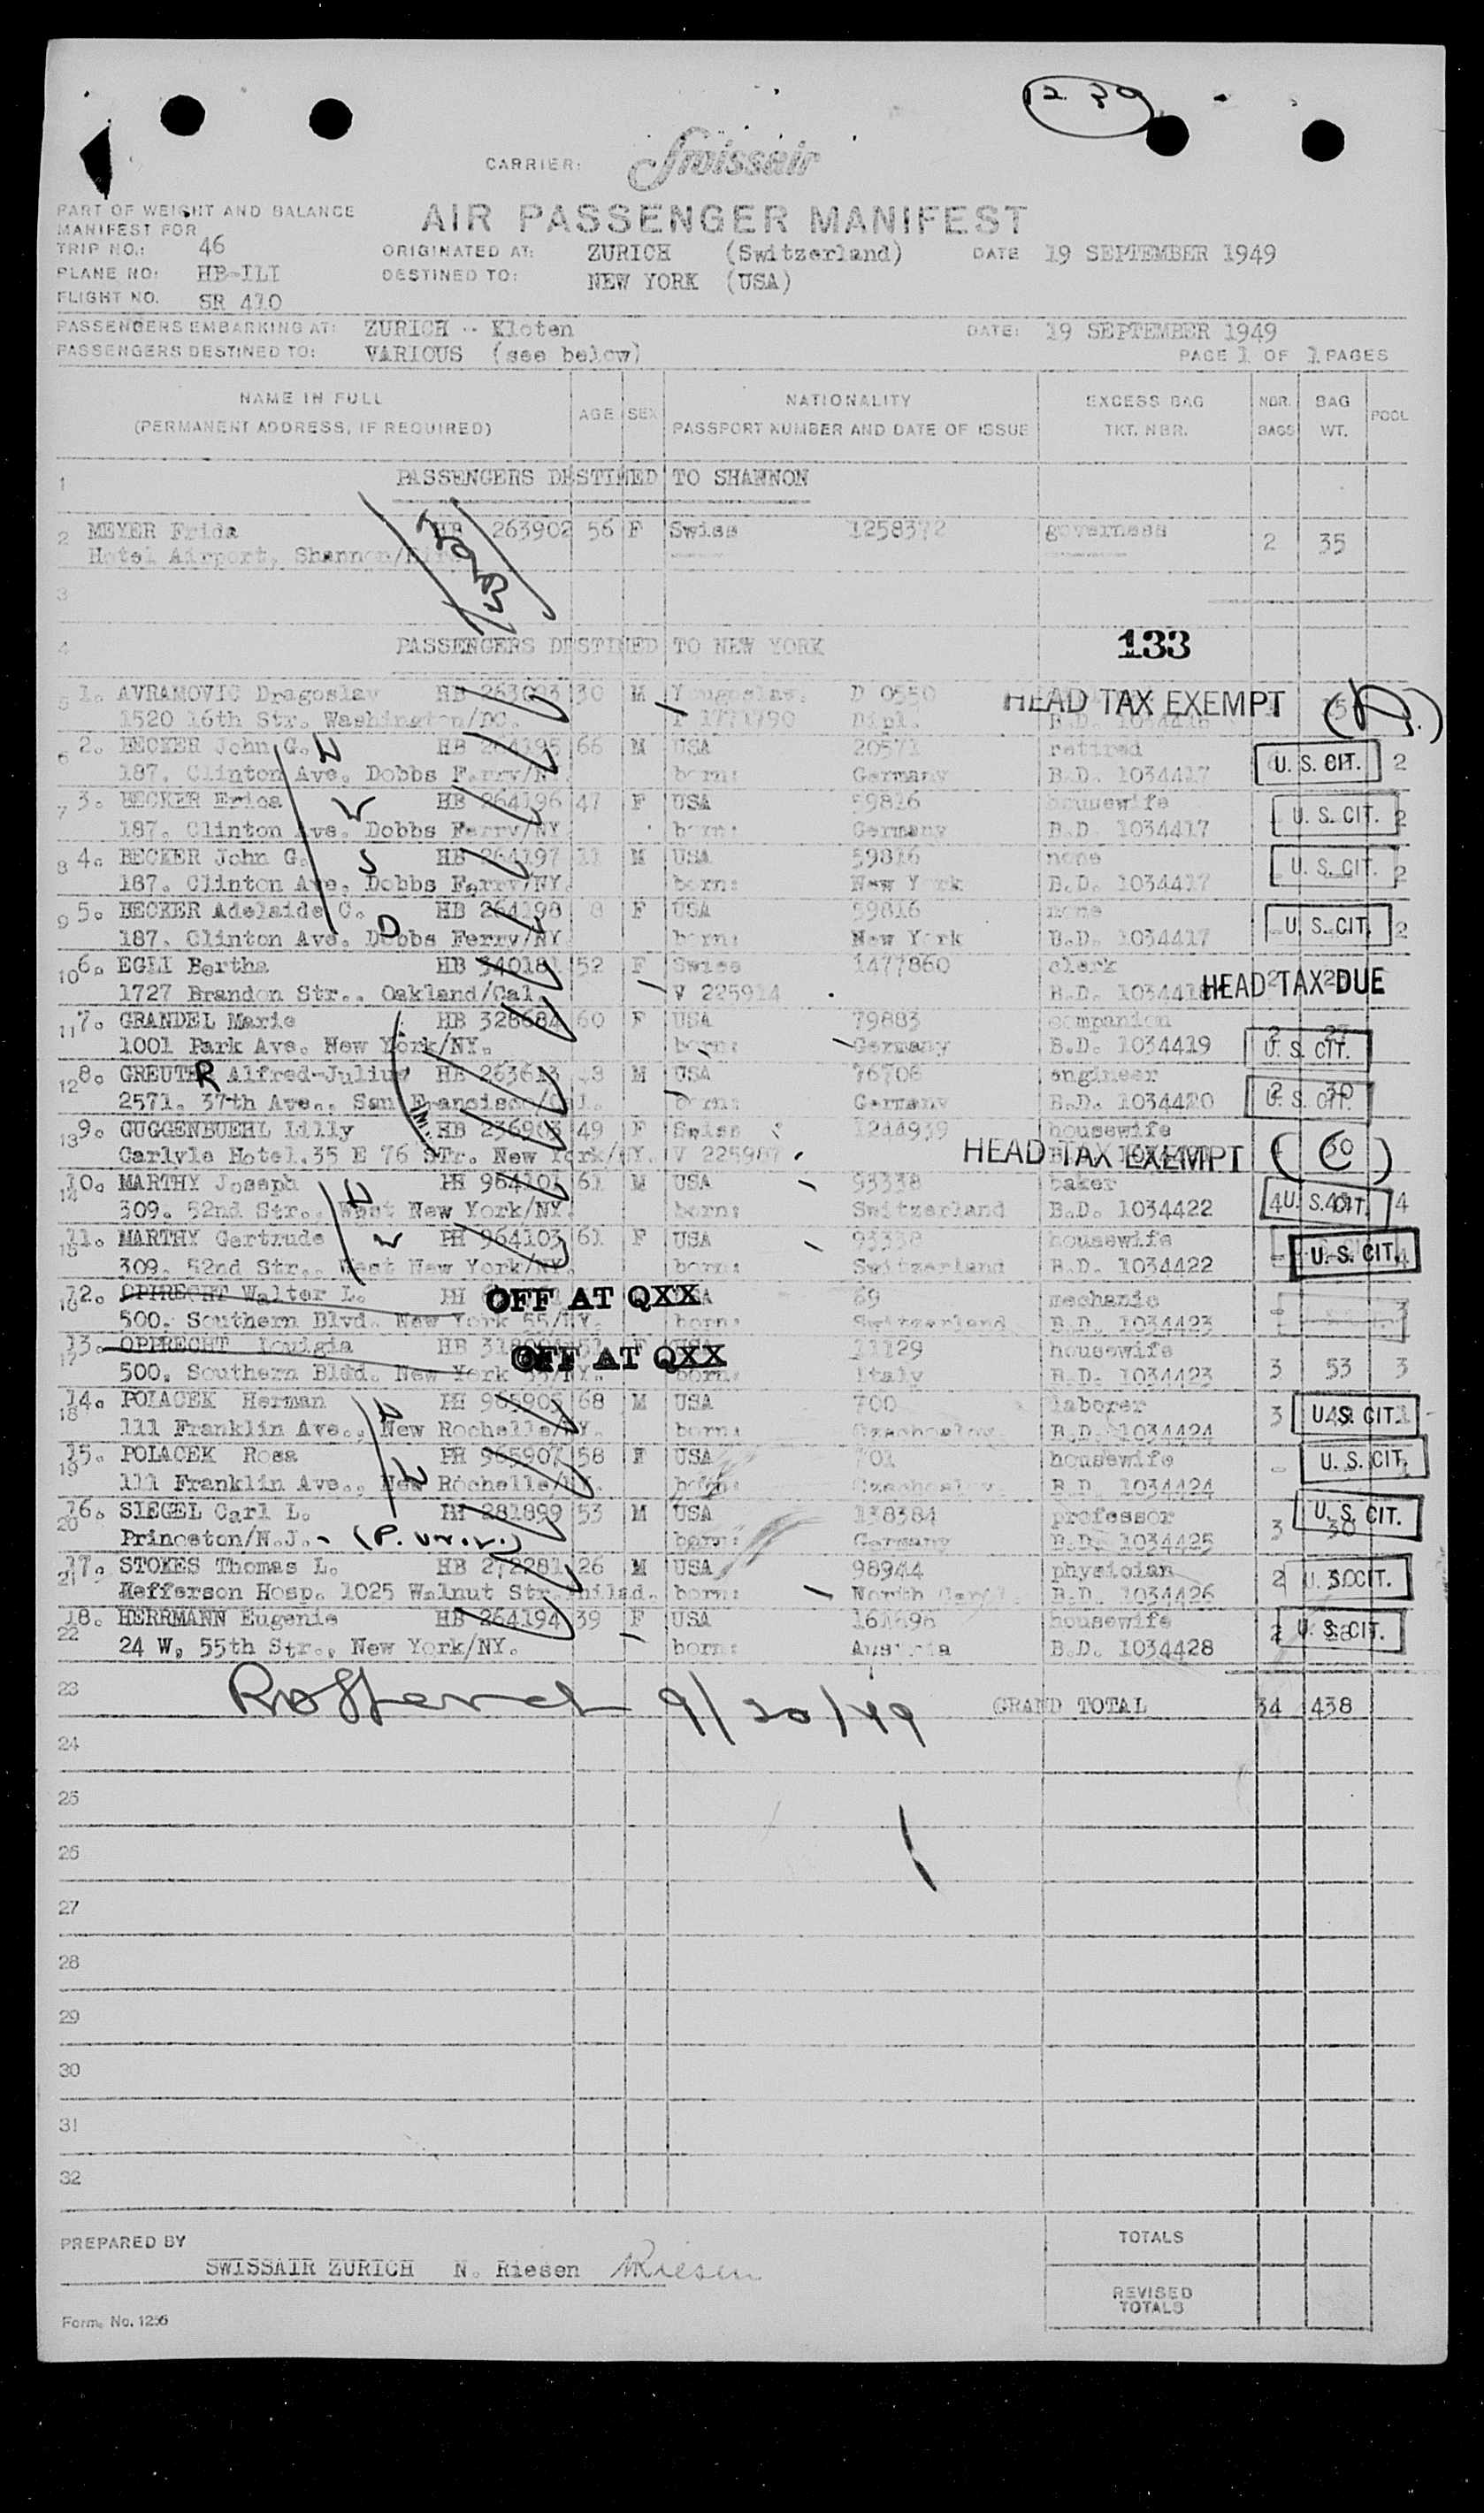 12 30
CARRIER: Swissair
PART OF WEIGHT AND BALANCE
MANIFEST FOR
AIR PASSENGER MANIFEST
TRIP NO.: 46 ORIGINATED AT: ZURICH (Switzerland) DATE 19 SEPTEMBER 1949
PLANE NO: HB-ILI DESTINED TO: NEW YORK (USA)
FLIGHT NO. SR 410
PASSENGERS EMBARKING AT: ZURICH -- Kloten DATE: 19 SEPTEMBER 1949
PASSENGERS DESTINED TO: VARIOUS (see below) PAGE 1 OF 1 PAGES
NAME IN FULL AGE SEX NATIONALITY EXCESS BAG NBR. BAG POOL
(PERMANENT ADDRESS, IF REQUIRED) PASSPORT NUMBER AND DATE OF ISSUE TKT. NBR. BAGS WT.
1 PASSENGERS DESTINED TO SHANNON
2 MEYER Frida HB 263902 56 F Swiss 1258372 governess 2 35
Hotel Airport, Shannon
3
4 PASSENGERS DESTINED TO NEW YORK 133
5 1. AVRAMOVIC Dragoslav HB 263093 30 M Yougoslav. D 0550 HEAD TAX EXEMPT
1520 16th Str. Washington/DC. Dipl. B.D.
6 2. BECKER John G. HB 264195 66 M USA 20571 retired U. S. CIT. 2
187. Clinton Ave. Dobbs Ferry/NY. born: Germany B.D. 1034417
7 3. BECKER Erica W HB 264196 47 F USA 59816 housewife U. S. CIT. 2
187. Clinton Ave. Dobbs Ferry/NY. born: Germany B.D. 1034417
8 4. BECKER John G. S HB 264197 11 M USA 59816 none U. S. CIT. 2
187. Clinton Ave. Dobbs Ferry/NY. born: New York B.D. 1034417
9 5. BECKER Adelaide C. D HB 264198 8 F USA 59816 none U. S. CIT. 2
187. Clinton Ave. Dobbs Ferry/NY born: New York B.D. 1034417
10 6. EGLI Bertha HB 340181 52 F Swiss 1477860 clerk HEAD TAX DUE
1727 Brandon Str.. Oakland/Cal. V 225914 B.D. 1034418
11 7. GRANDEL Marie HB 328684 60 F USA 79883 companion 2
1001 Park Ave. New York/NY. born: Germany B.D. 1034419 U. S. CIT.
12 8. GREUTER Alfred-Julius HB 263613 M USA 76708 engineer 2 30
2571. 37th Ave.. San Francisco born: Germany B.D. 1034420 U. S. CIT.
13 9. GUGGENBUEHL Lilly HB 236903 49 F Swiss 1244939 housewife 30
Carlyle Hotel.35 E 76 STr. New York/NY. V 225907 HEAD TAX EXEMPT (C)
14 10. MARTHY Joseph H PH 964101 61 M USA 93338 baker
309. 52nd Str.. West New York/NY. born: Switzerland B.D. 1034422 4 U. S. CIT. 4
15 11. MARTHY Gertrude W PH 964103 61 F USA 93338 housewife U. S. CIT.
309. 52nd Str.. West New York/NY. born: Switzerland B.D. 1034422
16 12. OPPRECHT Walter L. PH OFF AT QXX USA 69 mechanic
500. Southern Blvd. New York 55/NY. born: Switzerland B.D. 1034423 3
17 13. OPPRECHT Louigia HB OFF AT QXX F USA 11129 housewife 3 53 3
500. Southern Bldd. New York 55/NY. born: Italy B.D. 1034423
18 14. POLACEK Herman H PH 965905 68 M USA 700 laborer 3 U. S. CIT.
111 Franklin Ave., New Rochelle/NY. born: Czechoslov. B.D. 1034424
19 15. POLACEK Rosa W PH 965907 58 F USA 701 housewife - U. S. CIT.
111 Franklin Ave., New Rochelle/NY. born: Czechoslov. B.D. 1034424
20 16. SIEGEL Carl L. 281899 53 M USA 138384 professor 3 30 U. S. CIT.
Princeton/N.J. - (P. Univ.) born: Germany B.D. 1034425
21 17. STOKES Thomas L. HB 272281 26 M USA 98944 physician 2 30 U. S. CIT.
Hefferson Hosp. 1025 Walnut Str. Philad. born: North B.D. 1034426
22 18. HERRMANN Eugenie HB 264194 39 F USA housewife 2 U. S. CIT.
24 W. 55th Str., New York/NY. born: Austria B.D. 1034428
23 9/20/49 GRAND TOTAL 34 438
24
25
26
27
28
29
30
31
32
PREPARED BY TOTALS
SWISSAIR ZURICH N. Riesen NRiesen
REVISED
TOTALS
Form. No. 1256